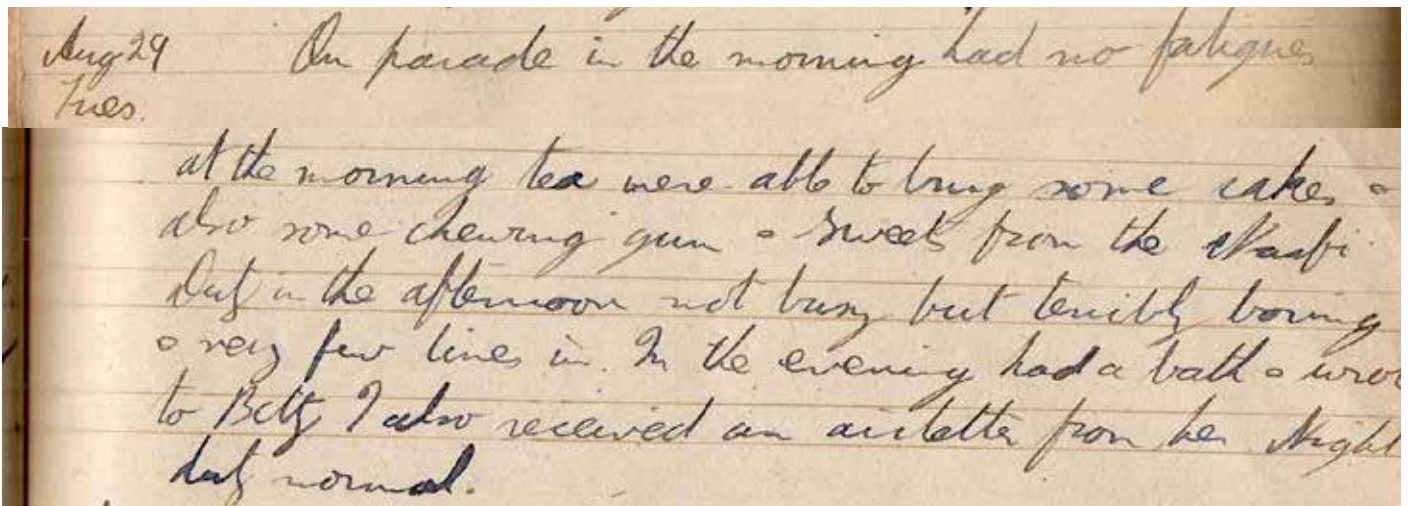 Aug 29 On parade in the morning had no fatigues
Tues.
at the morning tea were able to bring some cakes &
also some chewing gum & sweets from the Naafi
Duty in the afternoon not busy but terribly boring
& very few lines in. In the evening had a bath & wrot
to Betty I also received an airletter from her Night
duty normal.